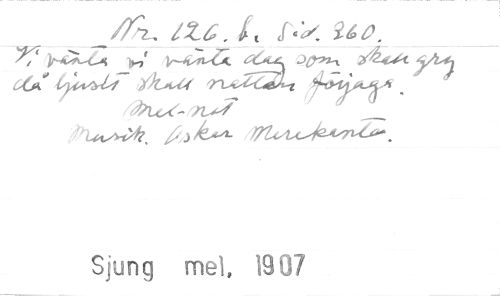 Nr. 126. b. Sid. 260.
Vi vänta vi vänta dag som skall gry
då ljuset skall natten förjaga.
Mel-not
Musik. Oskar Merikanto.
Sjung mel. 1907